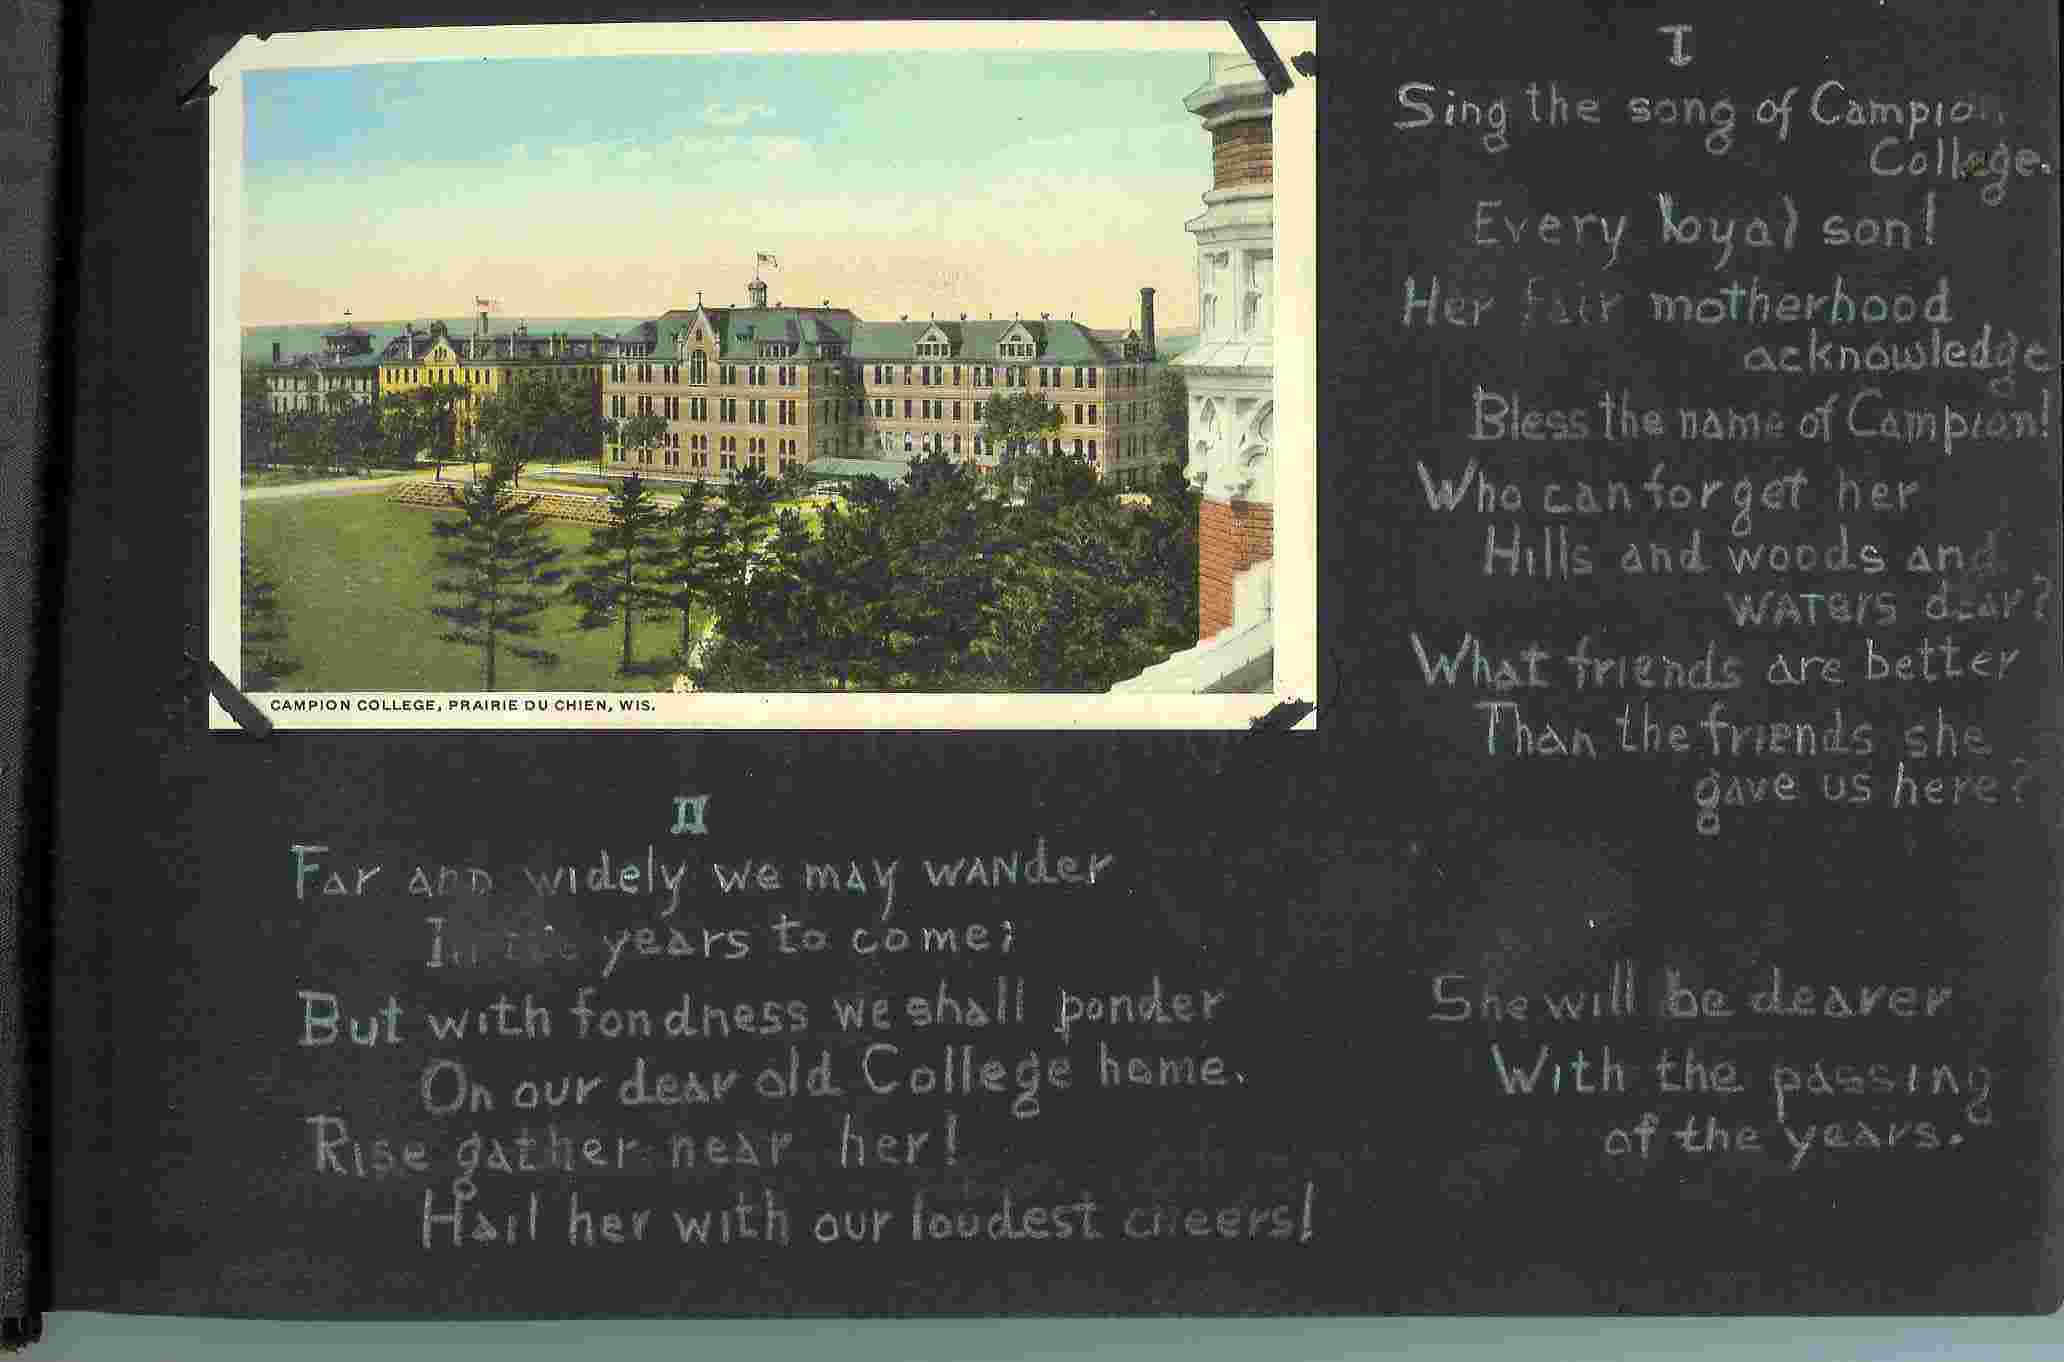 CAMPION COLLEGE, PRAIRIE DU CHIEN, WIS.
I
Sing the song of Campion
College.
Every loyal son!
Her fair motherhood
acknowledge
Bless the name of Campion!
Who can forget her
Hills and woods and
WATERS dear?
What friends are better
Than the friends she
gave us here?
II
Far and widely we may wander
In the years to come;
But with fondness we shall ponder
On our dear old College home.
Rise gather near her!
Hail her with our loudest cheers!
She will be dearer
With the passing
of the years.